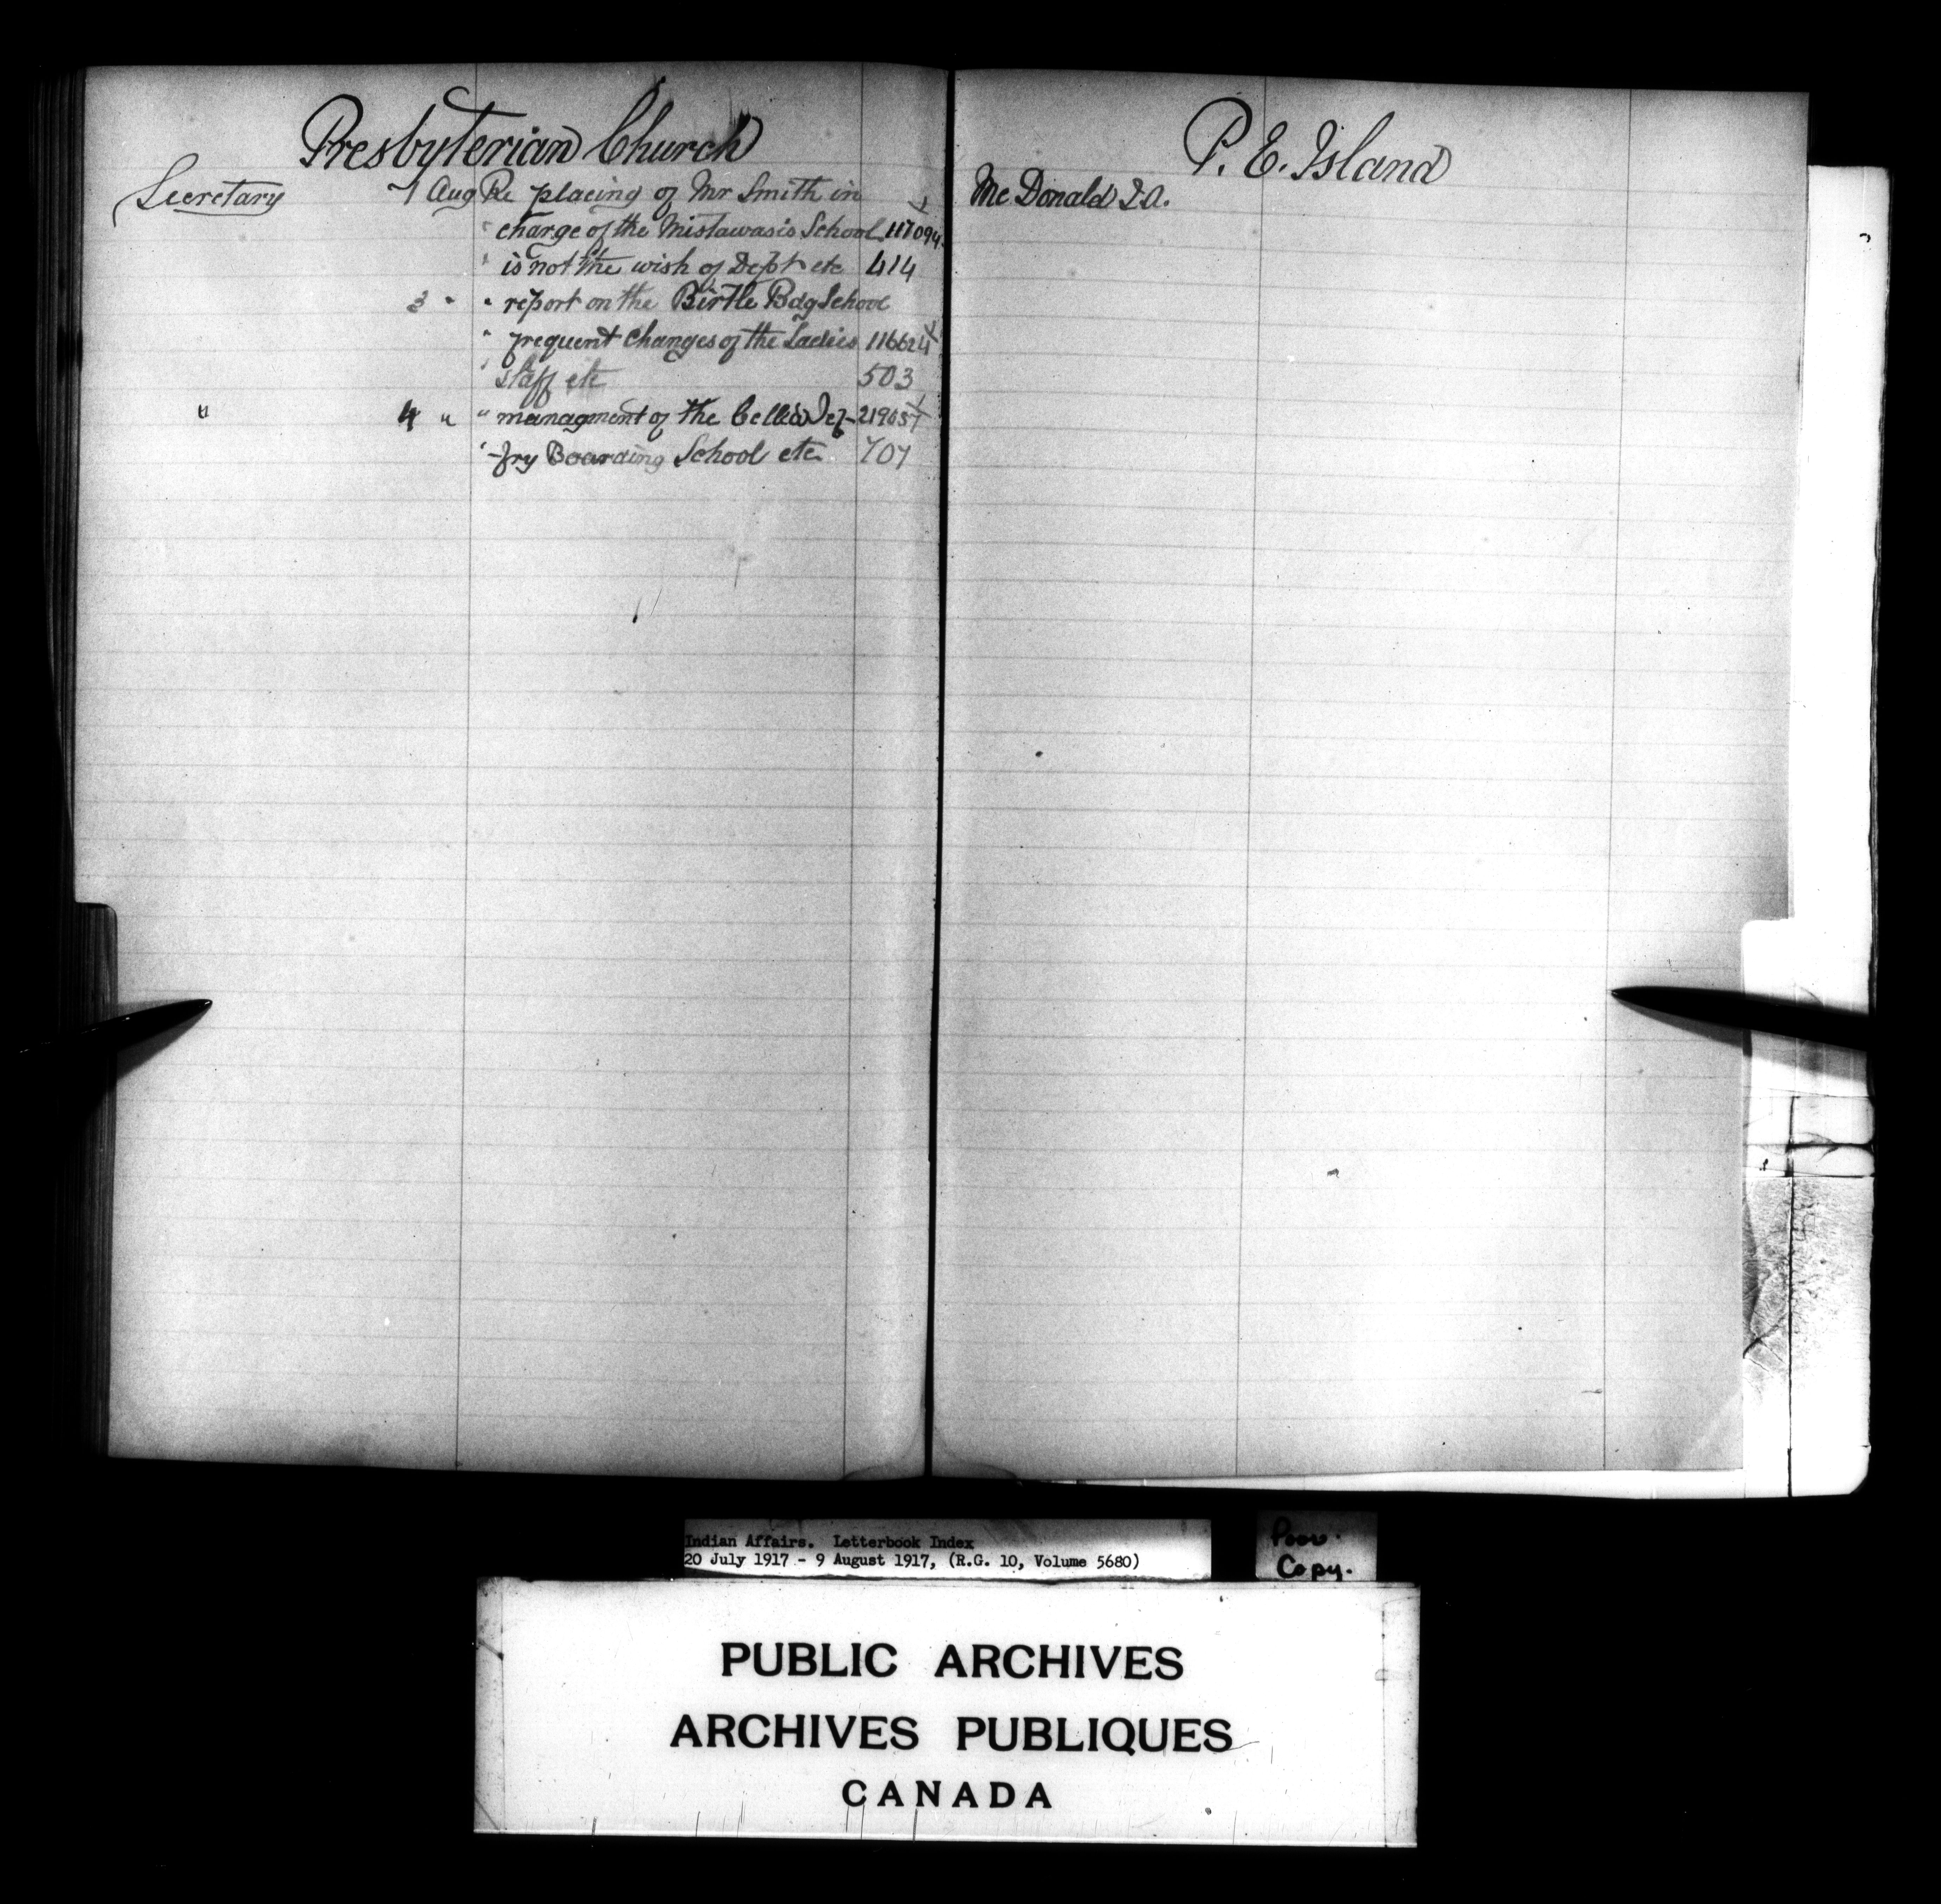 Presbyterian Church
Secretary 1 Aug Re placing of Mr Smith in
" charge of the Mistawasis School 117094
" is not the wish of Dept etc 414
3 " " report on the Birtle Bdg School
" frequent Changes of the Ladies 116624
" staff etc 503
" 4 " " managment of the Cecilia Jef- 219057
" -fry Boarding School etc 707
P. E. Island
McDonald J.A.
Indian Affairs. Letterbook Index
20 July 1917 - 9 August 1917, (R.G. 10, Volume 5680)
Poor.
Copy.
PUBLIC ARCHIVES
ARCHIVES PUBLIQUES
CANADA